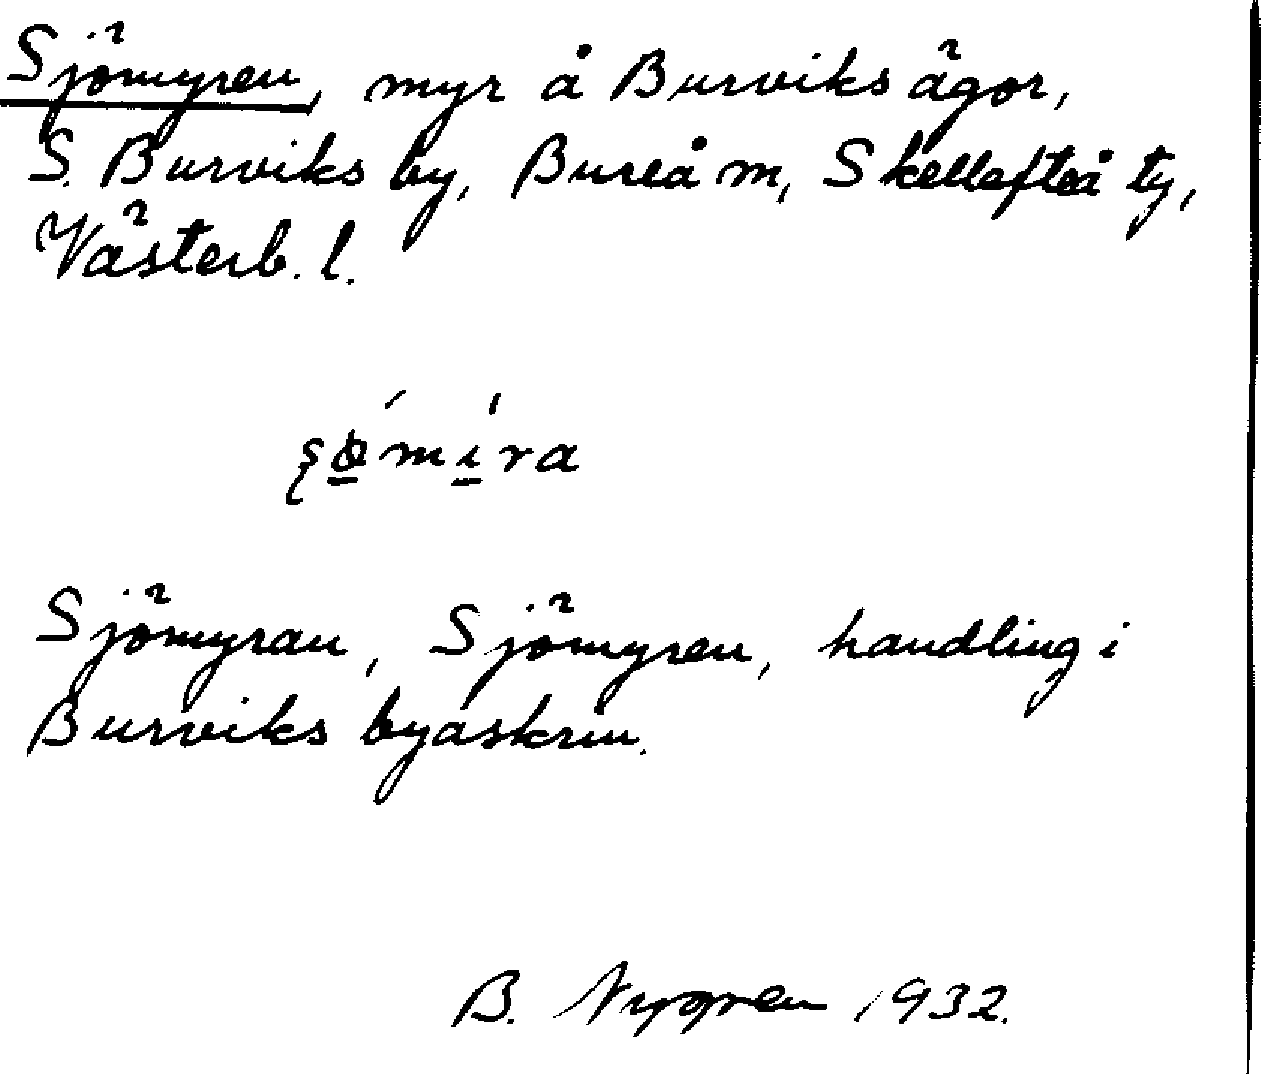 Sjömyren, myr å Burviks ägor,
S. Burviks by, Bureå m, Skellefteå ty,
Västerb. l.
Sjömyran, Sjömyren, handling i
Burviks byaskrin.
B. Nygren 1932.